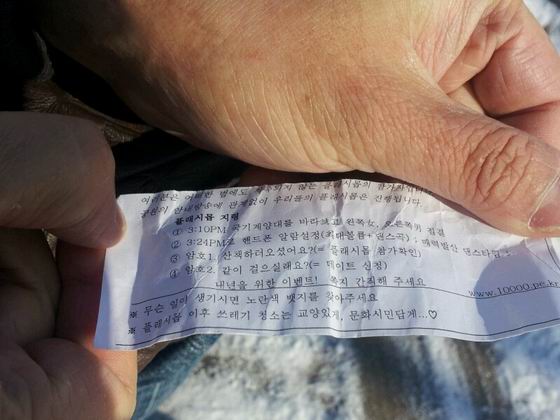 여러분은 어떠한 법에도 저촉되지 않는 플래시몹의 참가자입니다.
공원의 안내방송에 관계없이 우리들의 플래시몹은 진행됩니다.
플래시몹 지령
① 3:10PM 국기계양대를 바라보고 왼쪽女, 오른쪽男 집결
② 3:24PM로 핸드폰 알람설정(최대볼륨+댄스곡) ; 매력발산 댄스타임
③ 암호1. 산책하더오셨어요?(= 플래시몹 참가확인)
④ 암호2. 같이 걸으실래요?(= 데이트 신청)
내년을 위한 이벤트! 쪽지 간직해 주세요
www.10000.pe.kr
※ 무슨 일이 생기시면 노란색 뱃지를 찾아주세요
※ 플래시몹 이후 쓰레기 청소는 교양있게, 문화시민답게...♡